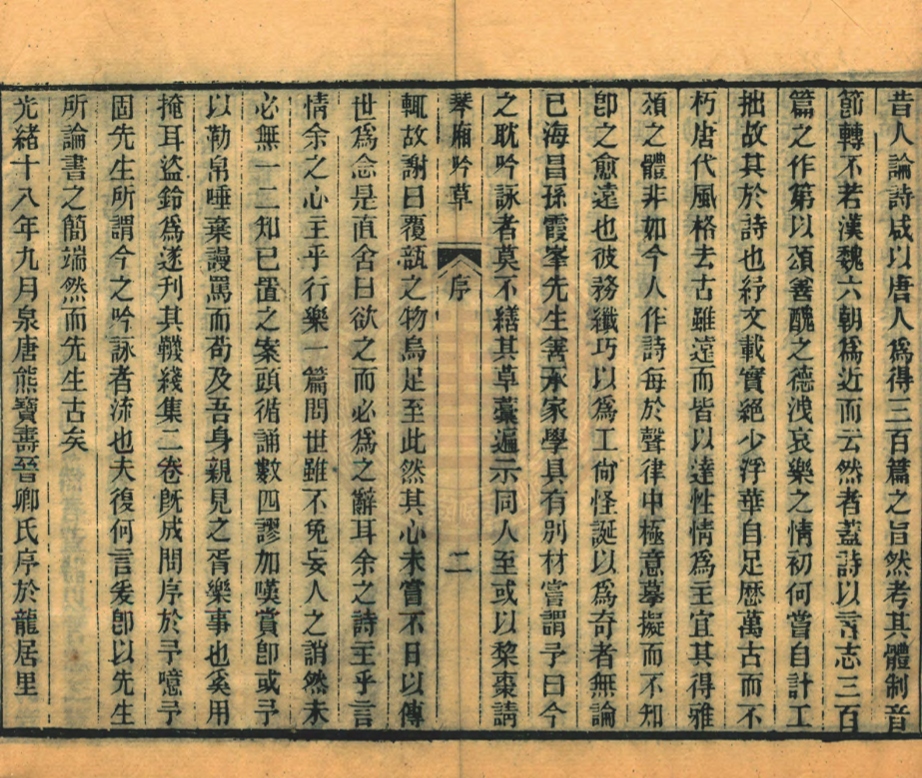 昔人論詩咸以唐人爲得三百篇之旨然考其體制音
節轉不若漢魏六朝爲近而云然者蓋詩以言志三百
篇之作第以頌善醜之德洩哀樂之情初何嘗自計工
拙故其於詩也紓文載實絶少浮華自足歷萬古而不
朽唐代風格去古雖遠而皆以達性情爲主宜其得雅
頌之體非如今人作詩每於聲律中極意摹擬而不知
卽之愈遠也彼務纖巧以爲工尙怪誕以爲奇者無論
已海昌孫霞峯先生善承家學具有別材嘗謂予曰今
之耽吟詠者莫不繕其草藁遍示同人至或以棃棗請
琴廂吟草 序 二
輒故謝曰覆瓿之物烏足至此然其心未嘗不日以傳
世爲念是直舍曰欲之而必爲之辭耳余之詩主乎言
情余之心主乎行樂一篇問世雖不免妄人之誚然未
必無一二知已置之案頭循誦數四謬加嘆賞卽或予
以勒帛唾棄謾罵而苟及吾身親見之胥樂事也奚用
掩耳盜鈴爲遂刊其韈綫集二卷旣成問序於予噫予
固先生所謂今之吟詠者流也夫復何言爰卽以先生
所論書之簡端然而先生古矣
光緒十八年九月泉唐熊寶壽晉卿氏序於龍居里